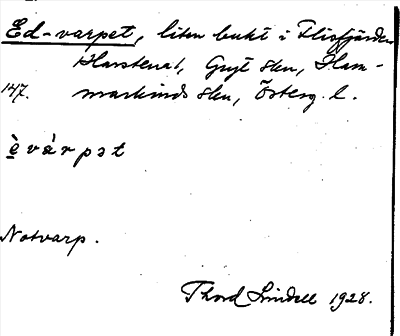 Ed-varpet, liten bukt i Flisfjärden
Harstena1, Gryt skn, Ham-
147. markinds skn, Österg. l.
è várpət
Notvarp.
Thord Lindell 1928.